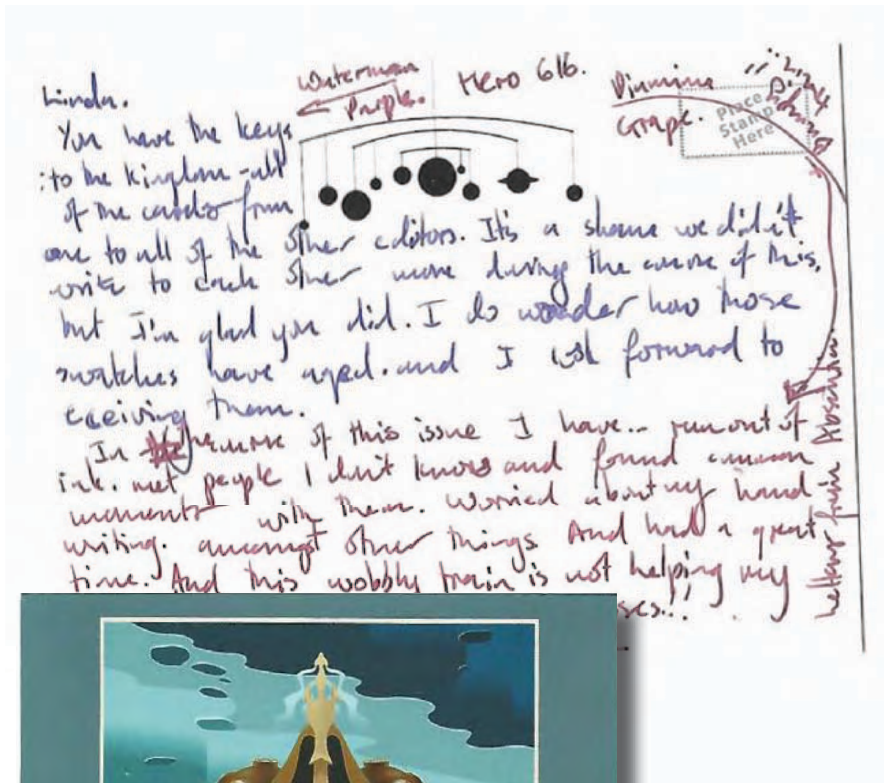 Linda.
Waterman
Purple.
Hero 616.
Diamine
Grape.
Place
Stamp
Here
You have the keys
to the kingdom - all
of the cards from
me to all of the other editors. It's a shame we didn't
write to each other more during the course of this,
but I'm glad you did. I do wonder how those
swatches have aged. and I look forward to
eceiving them.
In the course of this issue I have.. run out of
ink. met people I don't know and found common
moments with them. Worried about my hand
writing. amongst other things And had a great
time. And this wobbly train is not helping my
ses!!
Letters from Absentia.